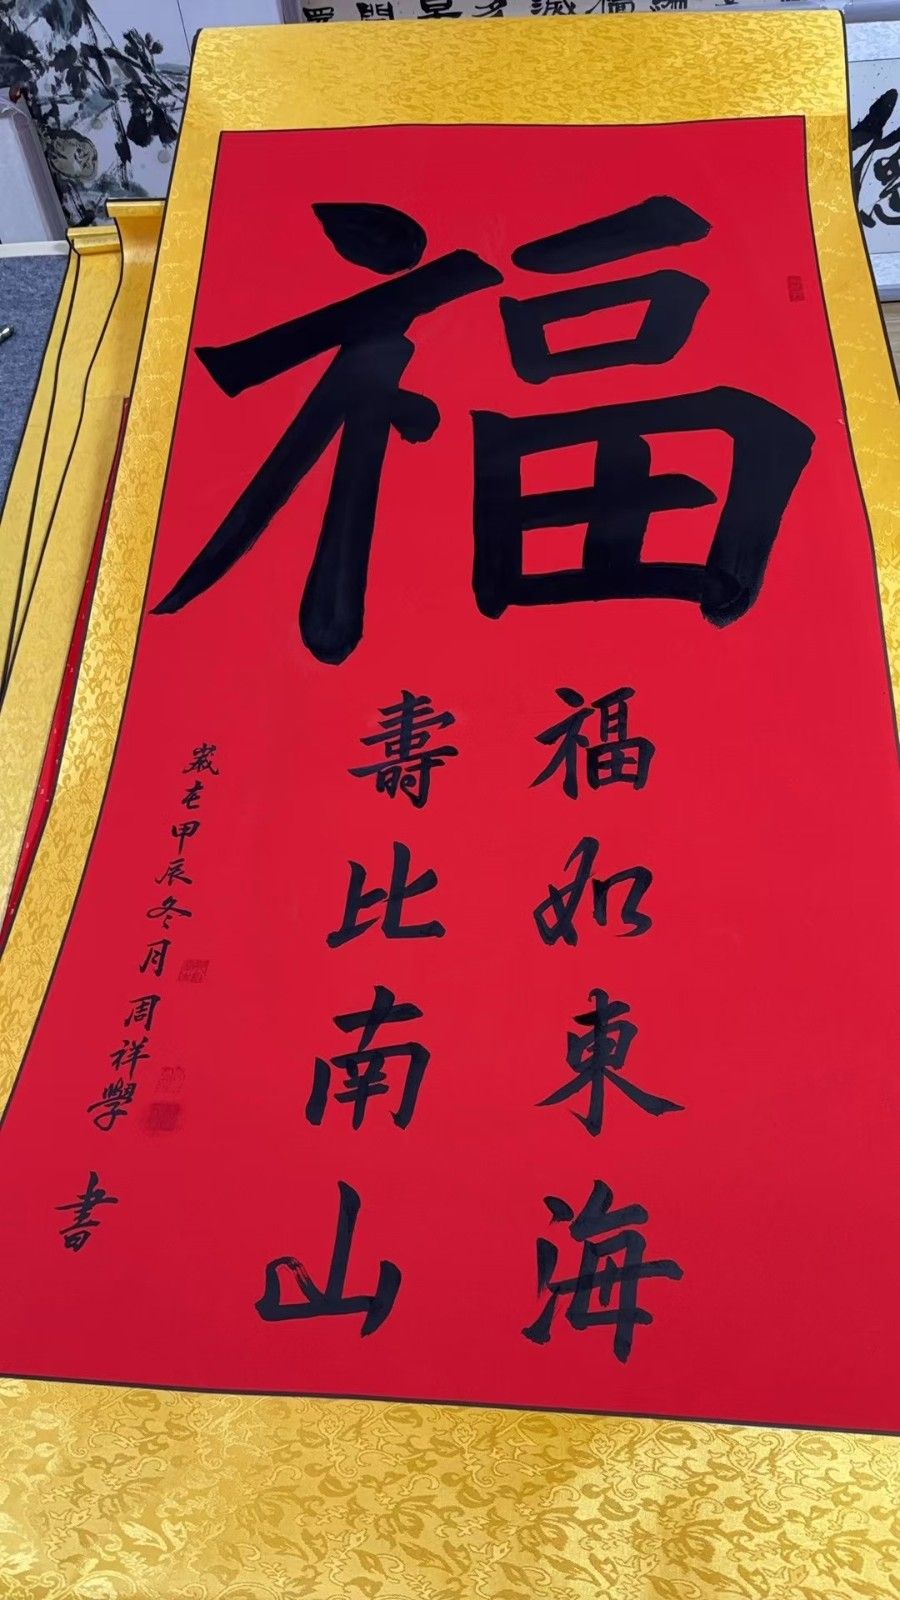 福
福如東海
壽比南山
歲在甲辰冬月周祥學書